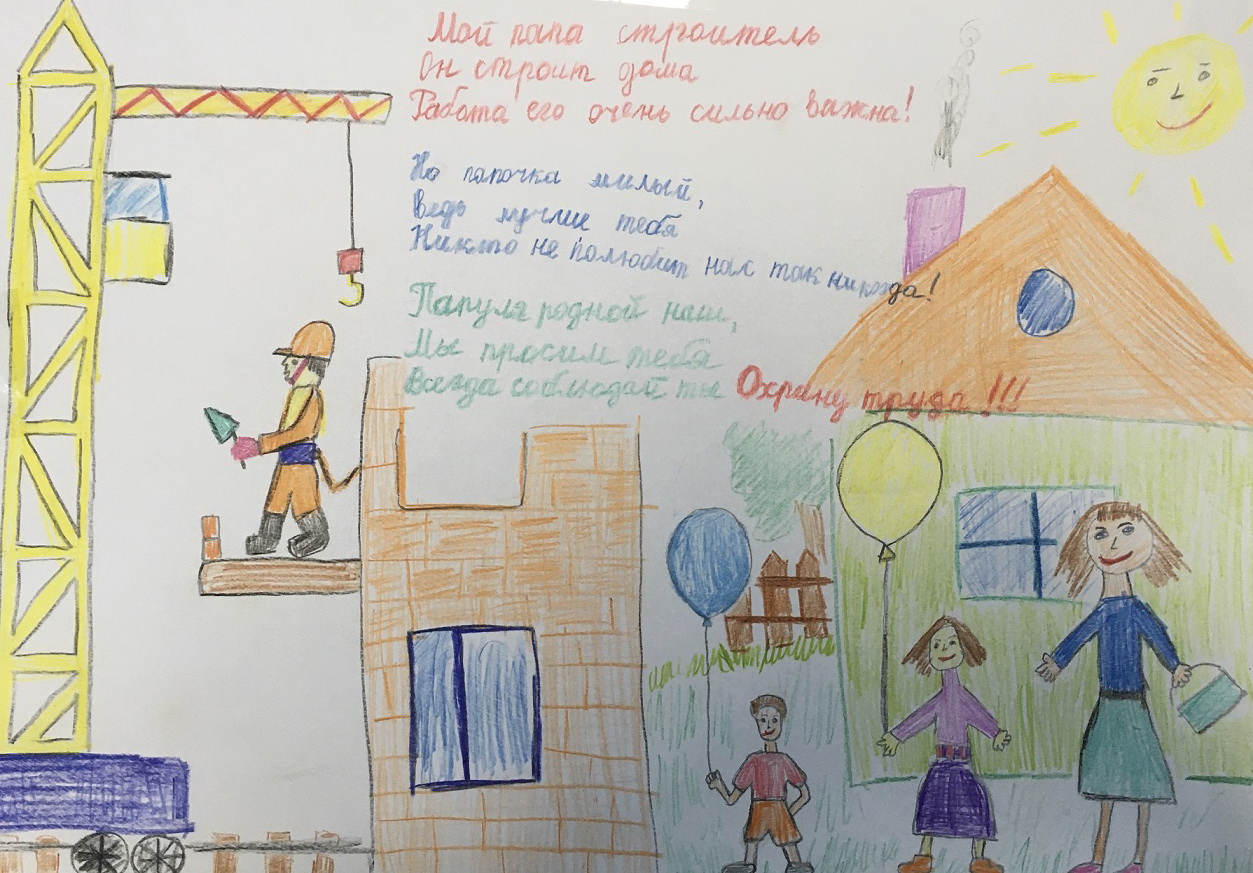 Мой папа строитель
Он строит дома
Работа его очень сильно важна!
Но папочка милый,
Ведь лучше тебя
Никто не полюбит нас так никогда!
Папуля родной наш,
Мы просим тебя
Всегда соблюдай ты Охрану труда!!!